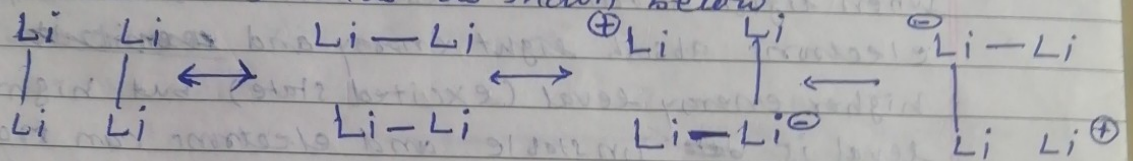 shown below
Li Li Li – Li ⊕Li Li ⊖Li – Li
| | ↔ ↔ | ← |
Li Li Li – Li Li – Li⊖ Li Li⊕